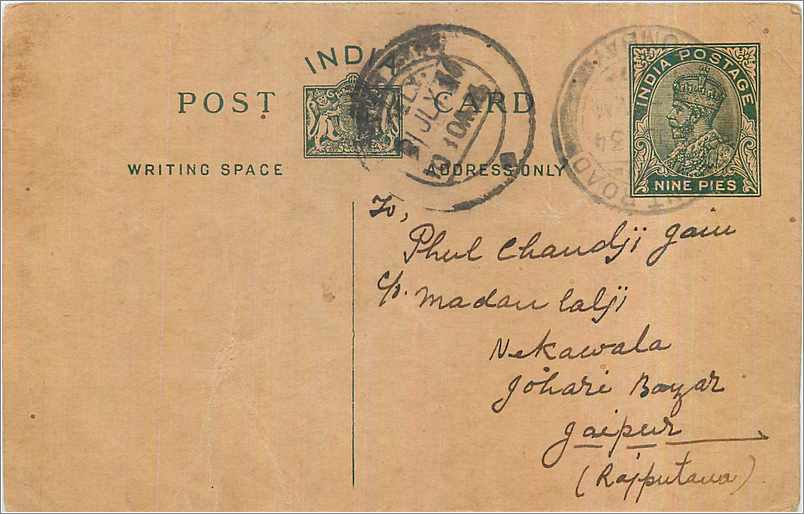 INDIA
POST CARD
WRITING SPACE ADDRESS ONLY
INDIA POSTAGE
NINE PIES
31 JLY
10 10AM
BOMBAY
34
ROAD
To,
Phul Chandji Jain
C/o. Madan Lalji
Nekawala
Johari Bazar
Jaipur
(Rajputana)